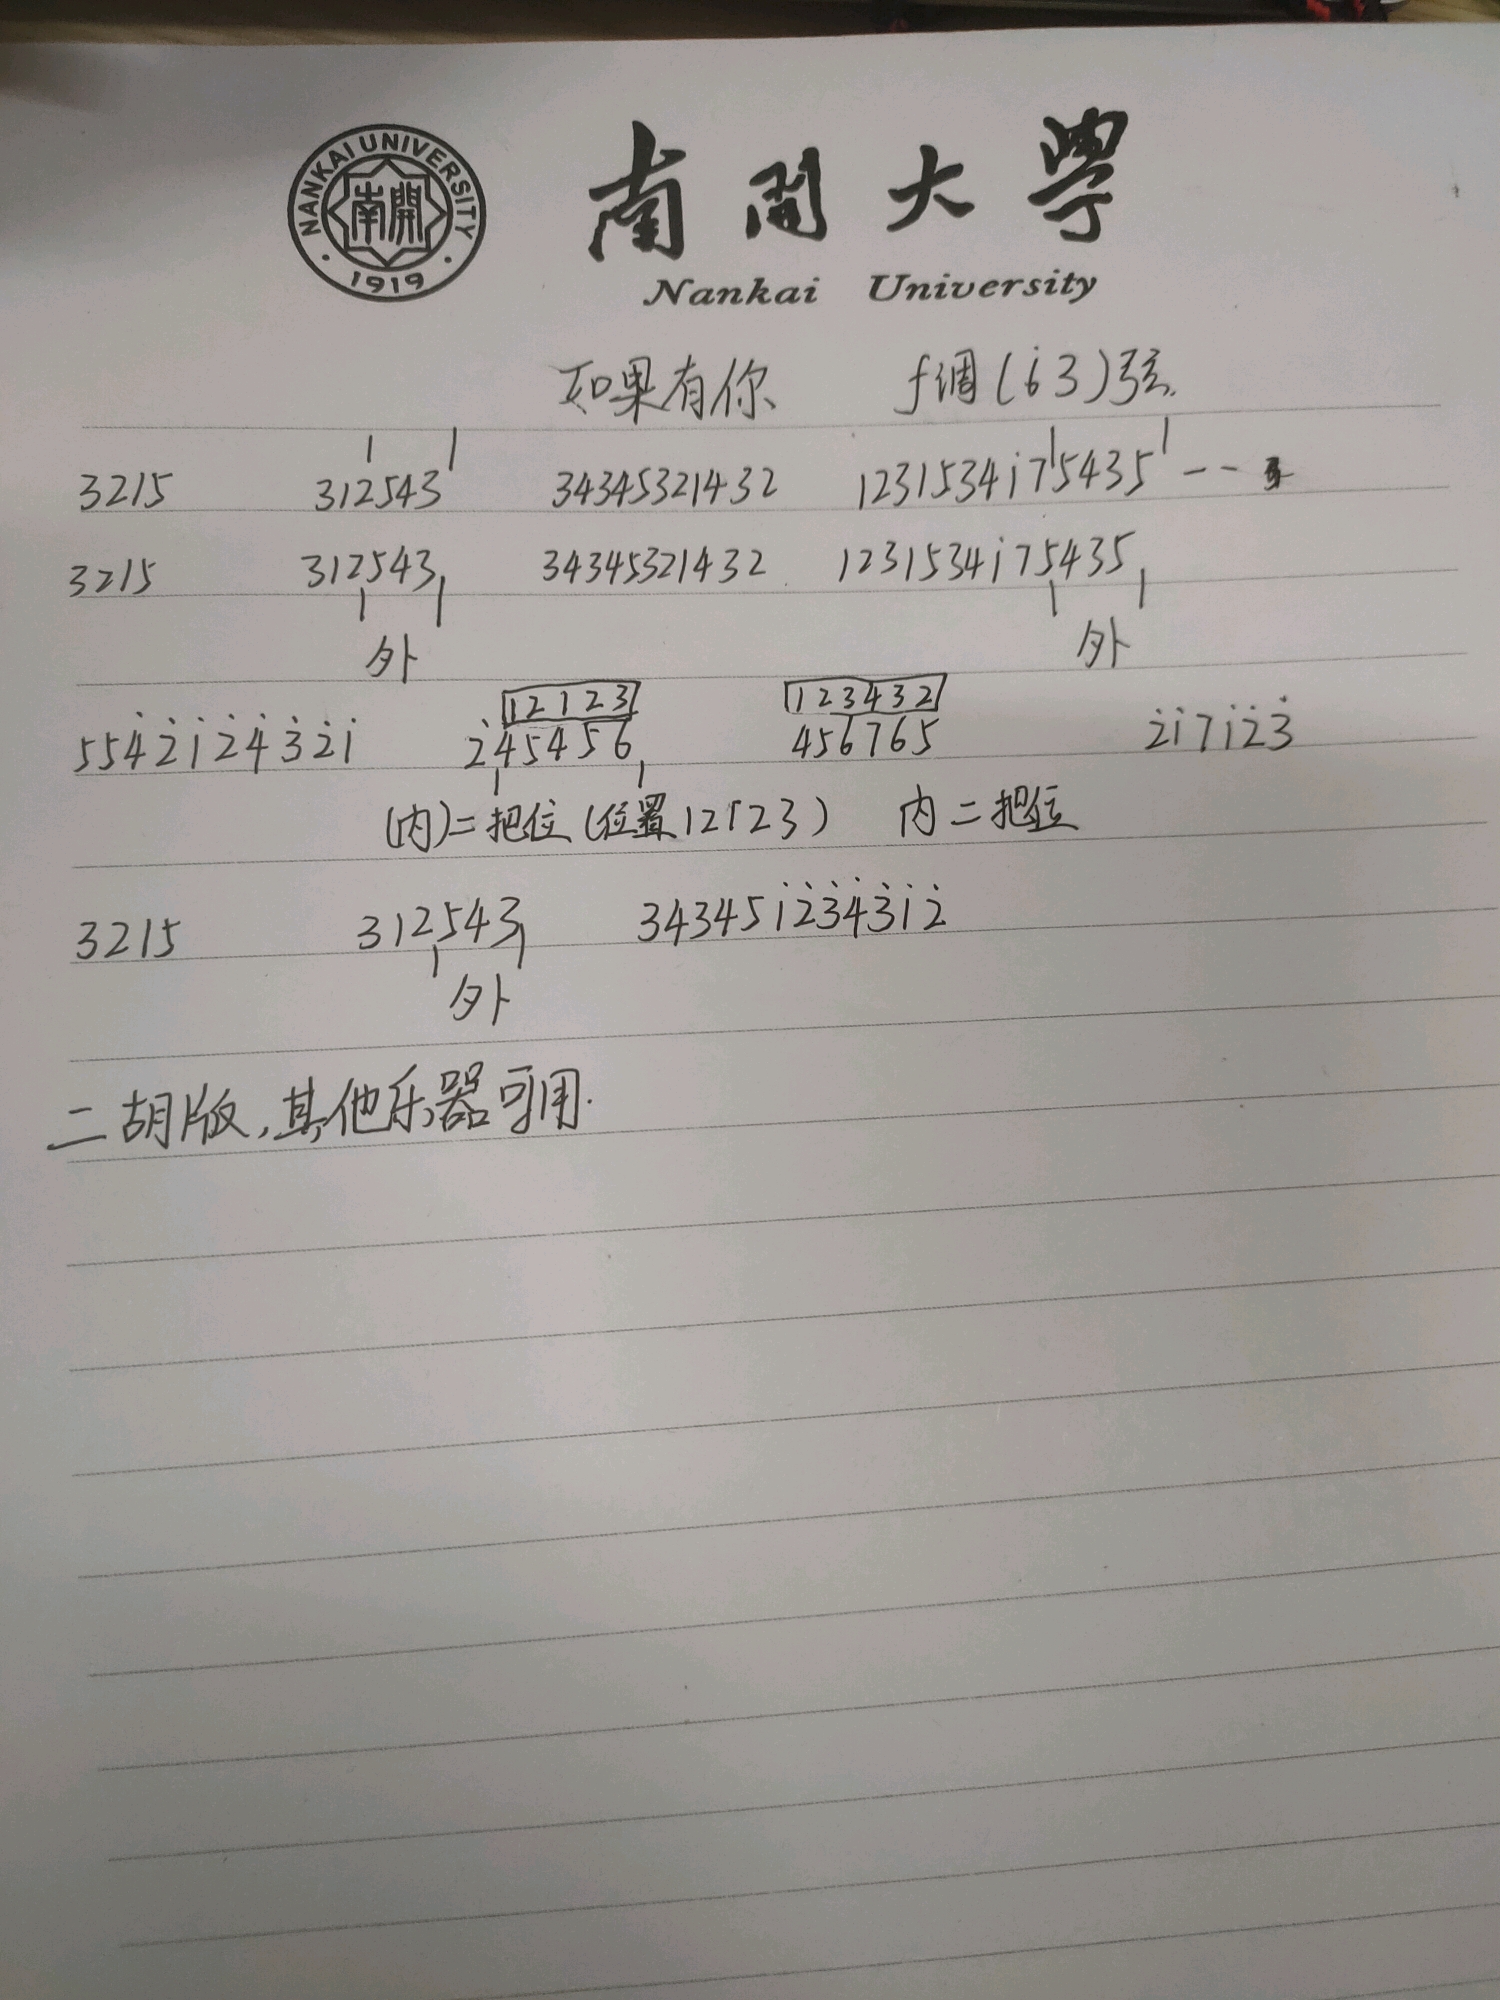 NANKAI UNIVERSITY
南開
1919
南開大學
Nankai University
如果有你 f调(i̇3)弦.
3215 312543 34345321432 1231534i̇75435 --
3215 312543 34345321432 1231534i̇75435
外 外
12123 123432
554̇2̇1̇2̇4̇3̇2̇1̇ 2̇45456 456765 2̇1̇71̇2̇3̇
(内)二把位(位置12123) 内二把位
3215 312543 343451̇2̇3̇4̇3̇1̇2̇
外
二胡版,其他乐器可用.